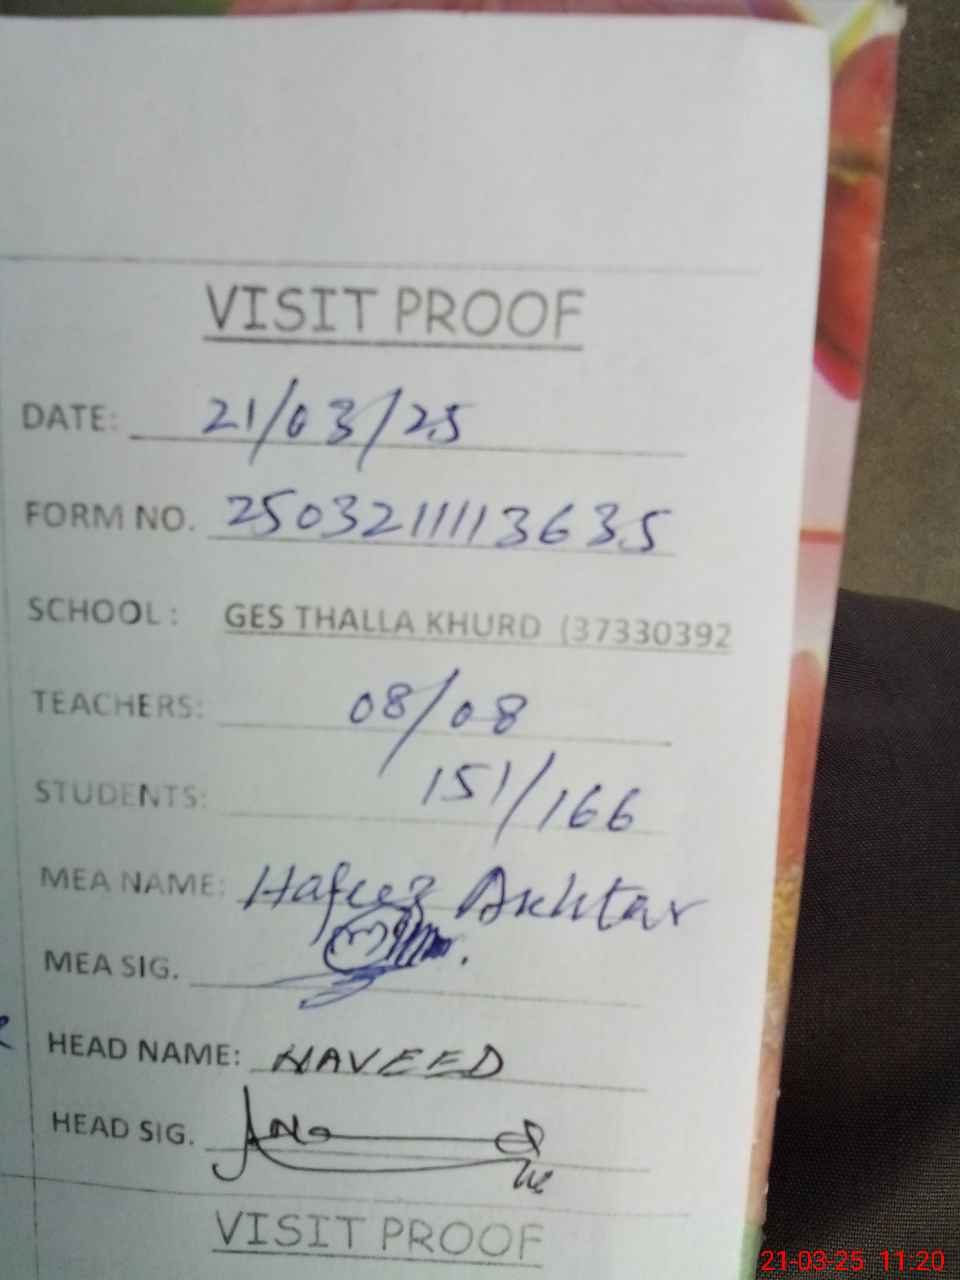 VISIT PROOF
DATE: 21/03/25
FORM NO. 2503211113635
SCHOOL : GES THALLA KHURD (37330392
TEACHERS: 08/08
STUDENTS: 151/166
MEA NAME: Hafeez Akhtar
MEA SIG.
HEAD NAME: NAVEED
HEAD SIG.
VISIT PROOF
21-03-25 11:20